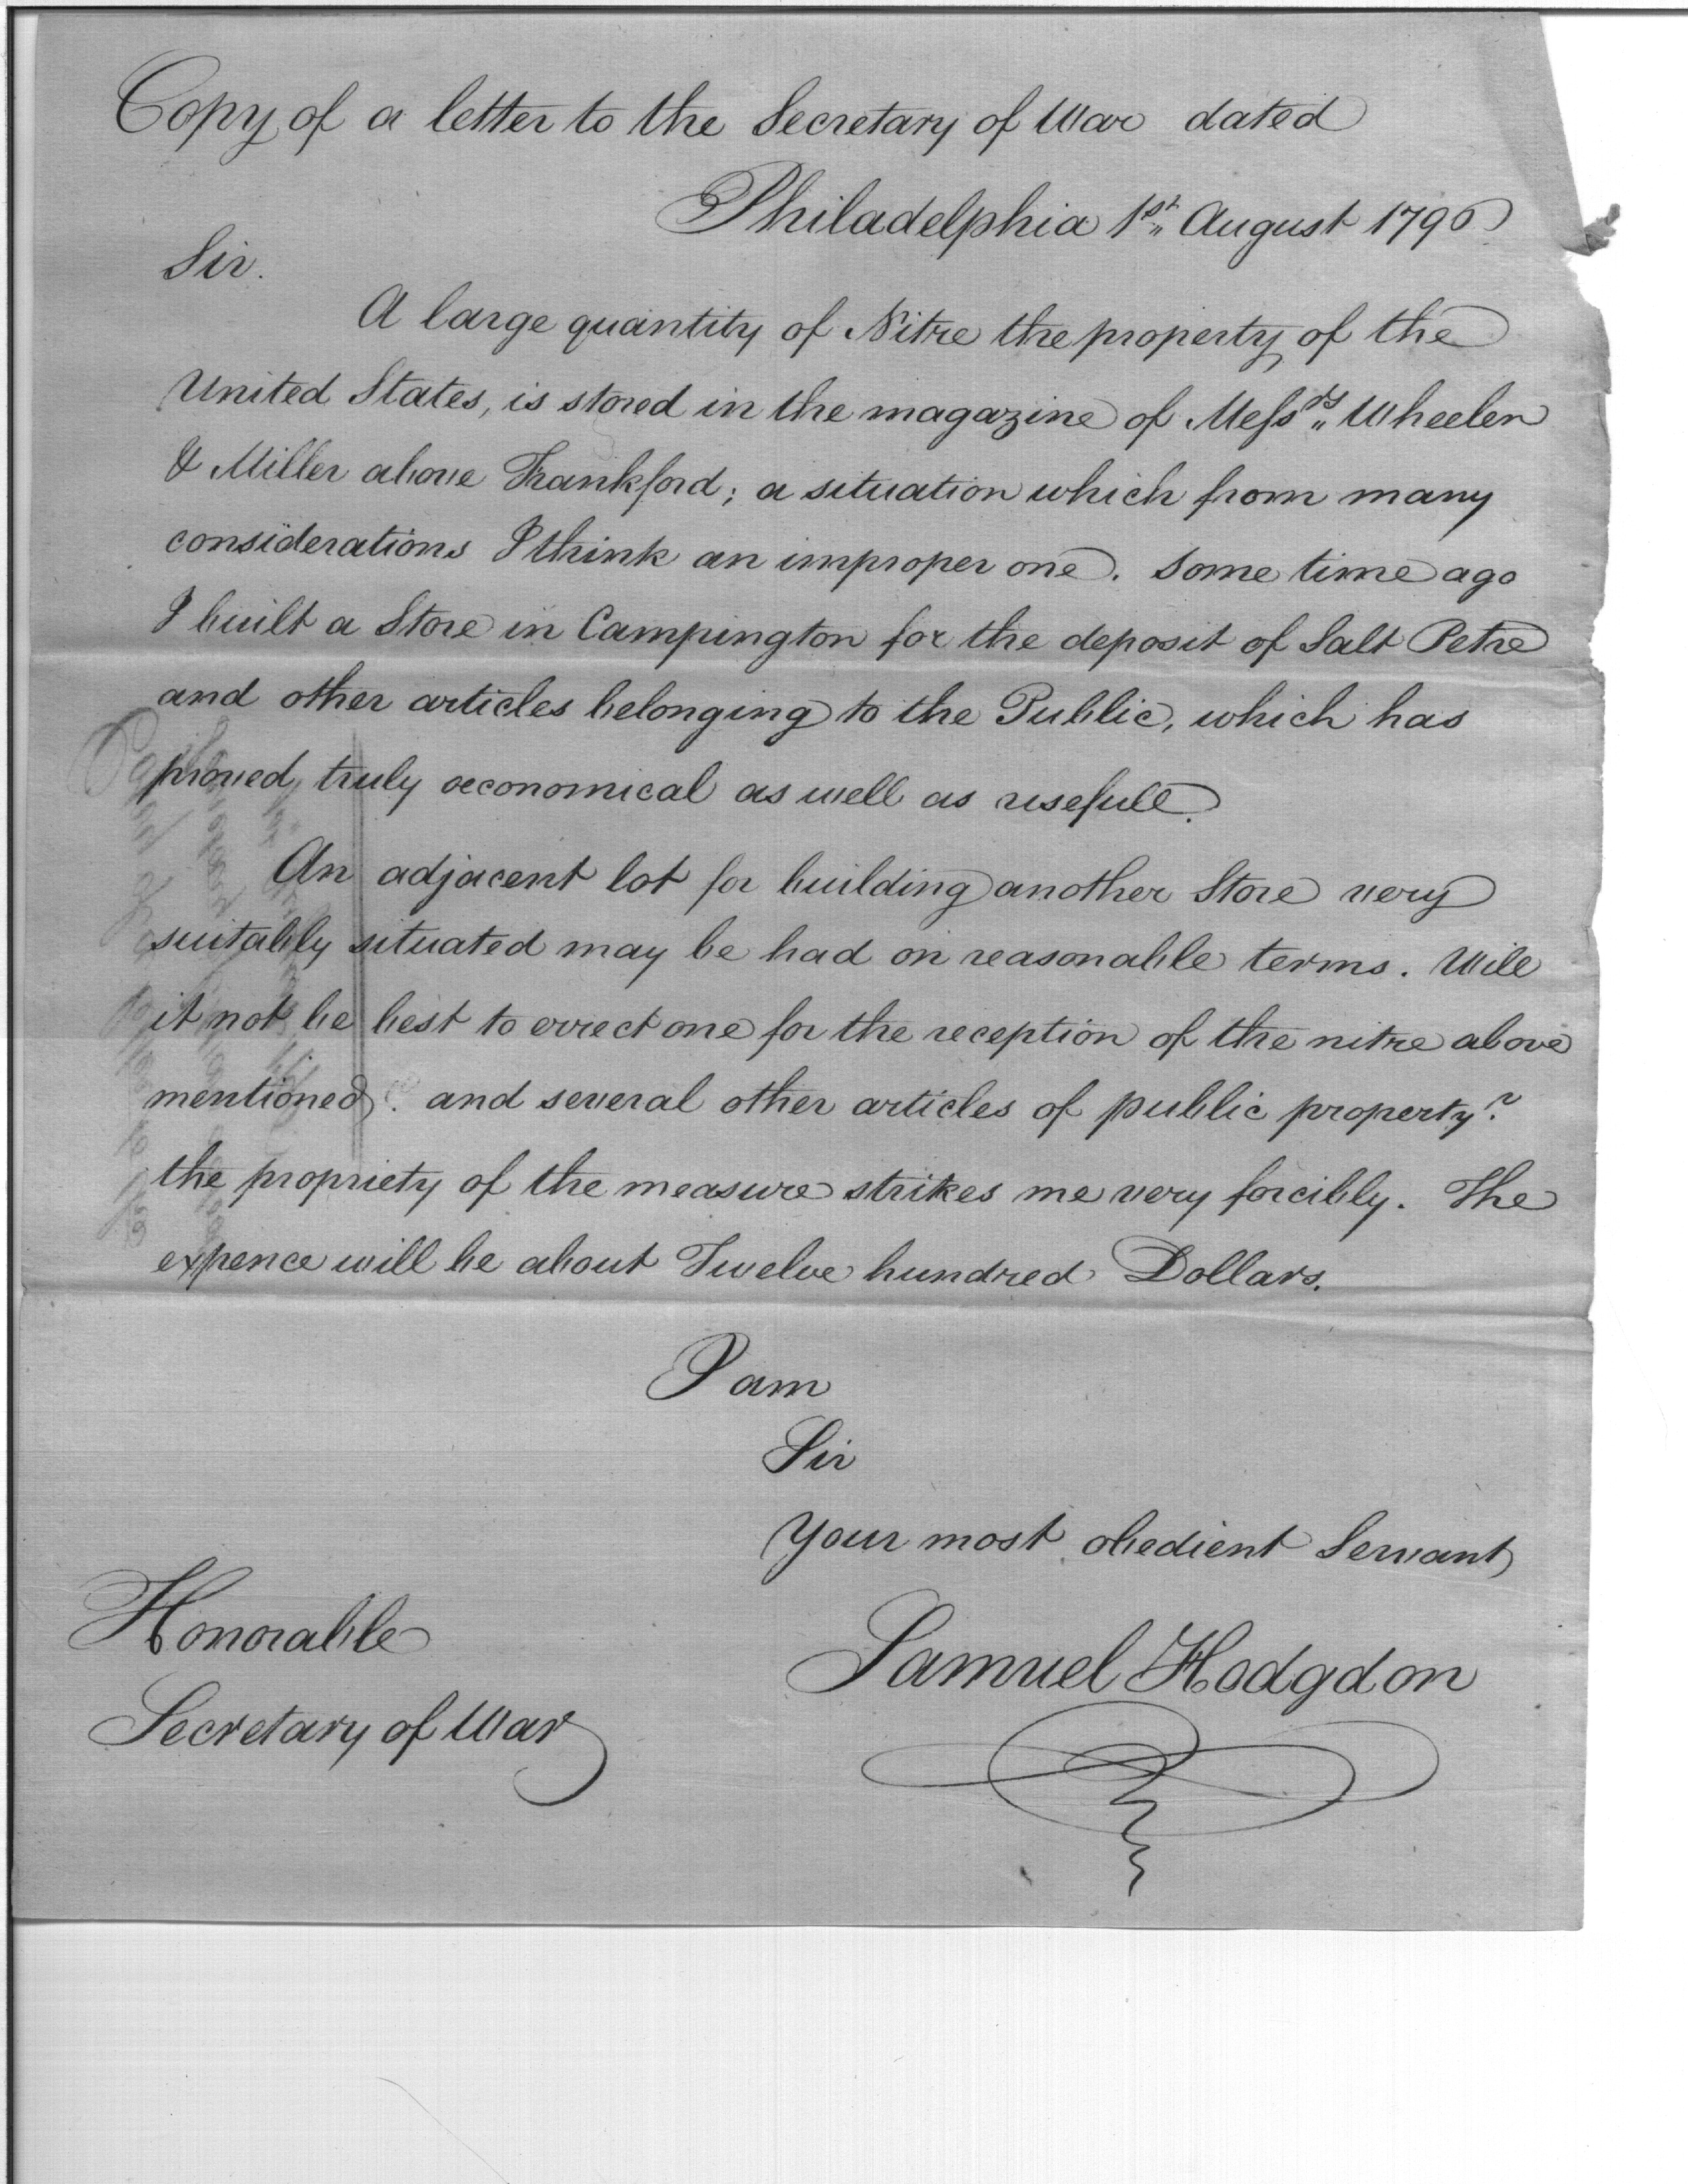 Copy of a letter to the Secretary of War dated
Philadelphia 1st„ August 1796
Sir.
A large quantity of Nitre the property of the
United States, is stored in the magazine of Messrs„ Wheelen
& Miller above Frankford; a situation which from many
considerations I think an improper one. Some time ago
I built a Store in Campington for the deposit of Salt Petre
and other articles belonging to the Public, which has
proved truly oeconomical as well as usefull.
An adjacent lot for building another Store very
suitably situated may be had on reasonable terms. Will
it not be best to errect one for the reception of the nitre above
mentioned. and several other articles of public property?
the propriety of the measure strikes me very forcibly. The
expence will be about Twelve hundred Dollars.
I am
Sir
Your most obedient Servant
Honorable
Samuel Hodgdon
Secretary of War